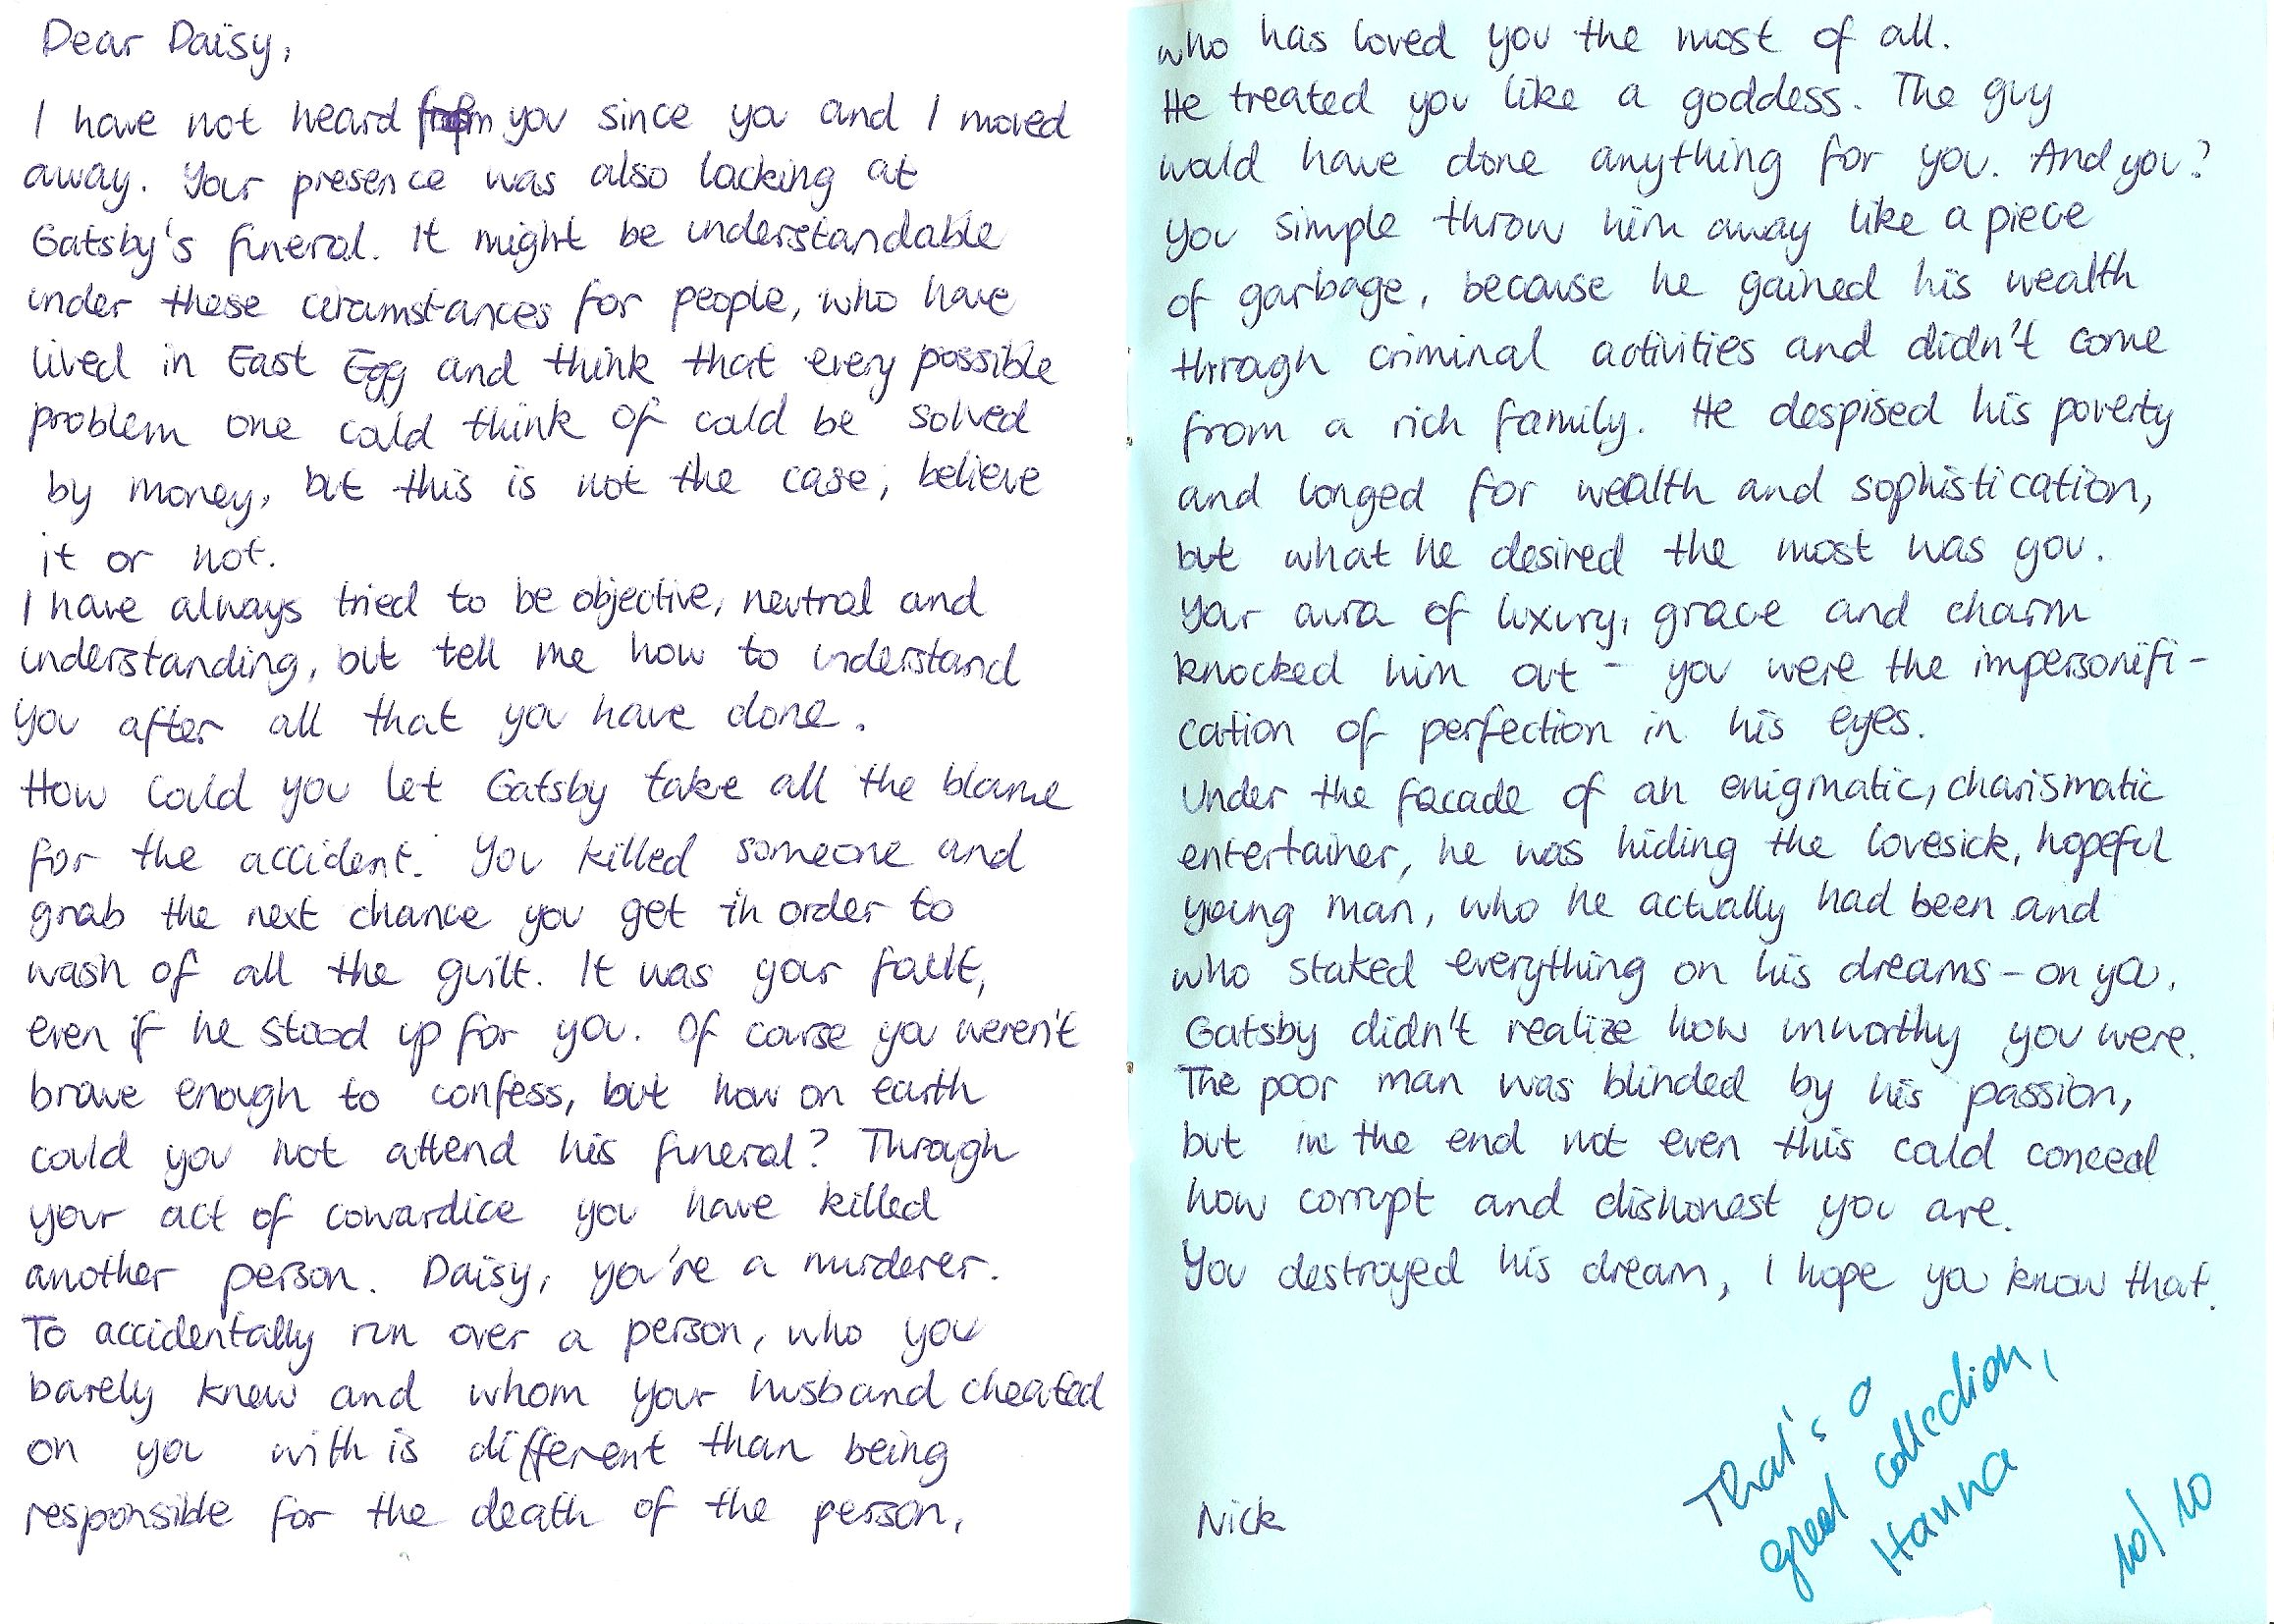 Dear Daisy,
I have not heard from you since you and I moved
away. Your presence was also lacking at
Gatsby's funeral. It might be understandable
under these circumstances for people, who have
lived in East Egg and think that every possible
problem one could think of could be solved
by money, but this is not the case, believe
it or not.
I have always tried to be objective, neutral and
understanding, but tell me how to understand
you after all that you have done.
How could you let Gatsby take all the blame
for the accident. You killed someone and
grab the next chance you get in order to
wash of all the guilt. It was your fault,
even if he stood up for you. Of course you weren't
brave enough to confess, but how on earth
could you not attend his funeral? Through
your act of cowardice you have killed
another person. Daisy, you're a murderer.
To accidentally run over a person, who you
barely knew and whom your husband cheated
on you with is different than being
responsible for the death of the person,
who has loved you the most of all.
He treated you like a goddess. The guy
would have done anything for you. And you?
You simple throw him away like a piece
of garbage, because he gained his wealth
through criminal activities and didn't come
from a rich family. He despised his poverty
and longed for wealth and sophistication,
but what he desired the most was you.
Your aura of luxury, grace and charm
knocked him out - you were the impersonifi-
cation of perfection in his eyes.
Under the facade of an enigmatic, charismatic
entertainer, he was hiding the lovesick, hopeful
young man, who he actually had been and
who staked everything on his dreams - on you.
Gatsby didn't realize how unworthy you were.
The poor man was blinded by his passion,
but in the end not even this could conceal
how corrupt and dishonest you are.
You destroyed his dream, I hope you know that.
Nick
That's a
great collection,
Hanna
10/10